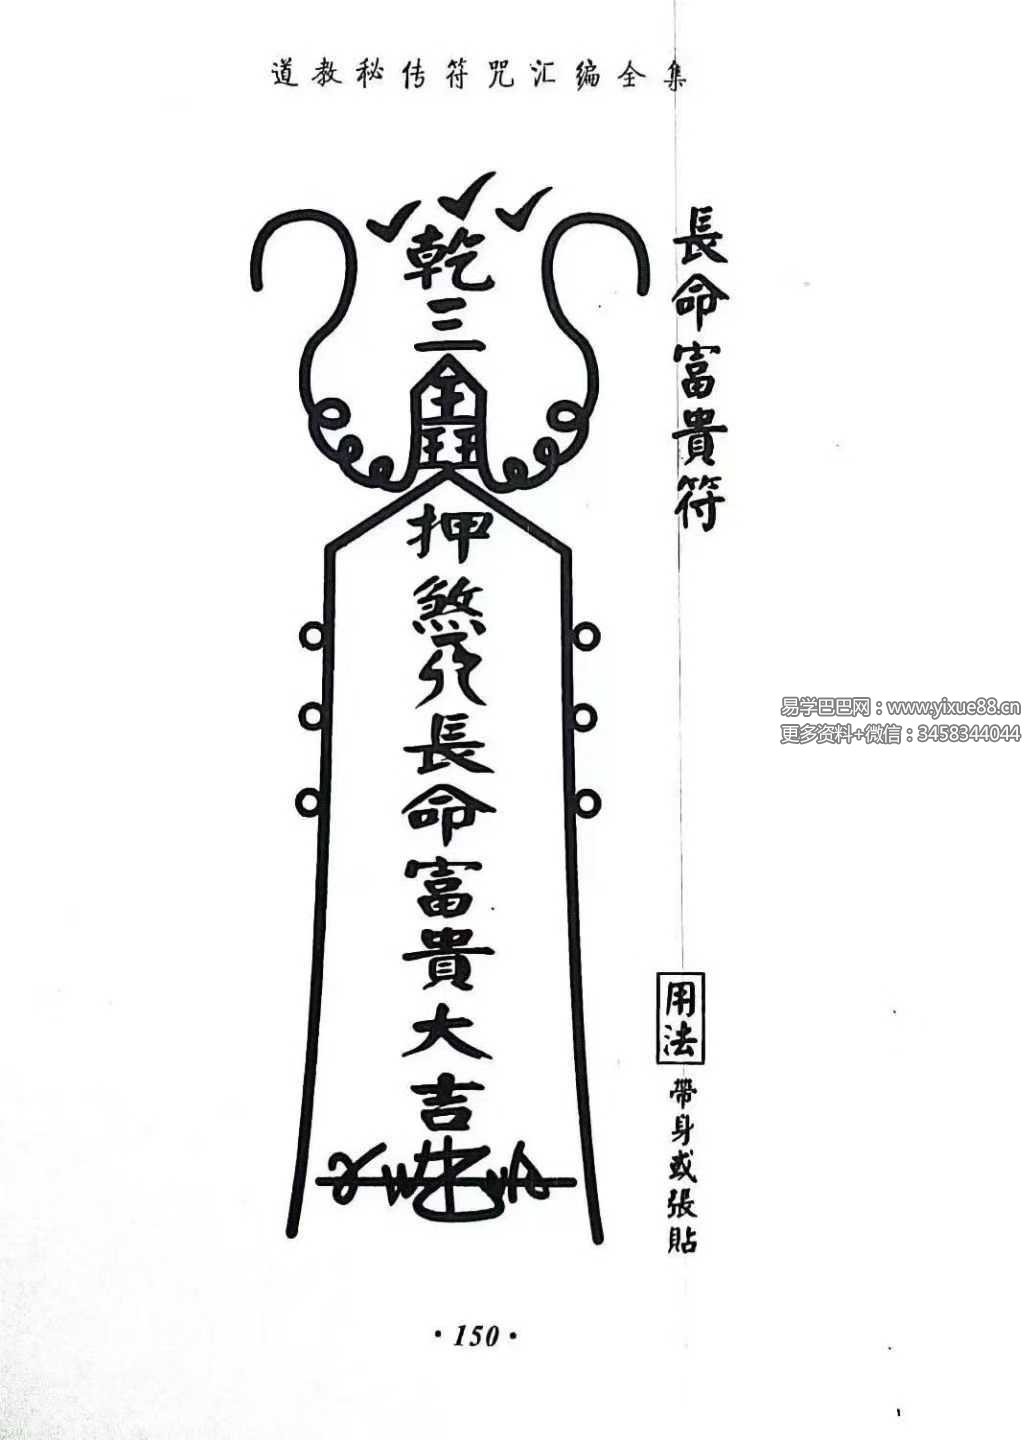 道教秘传符咒汇编全集
長命富貴符
乾三
押煞
長命富貴大吉
用法
帶身或張貼
易学巴巴网：www.yixue88.cn
更多资料+微信：3458344044
·150·